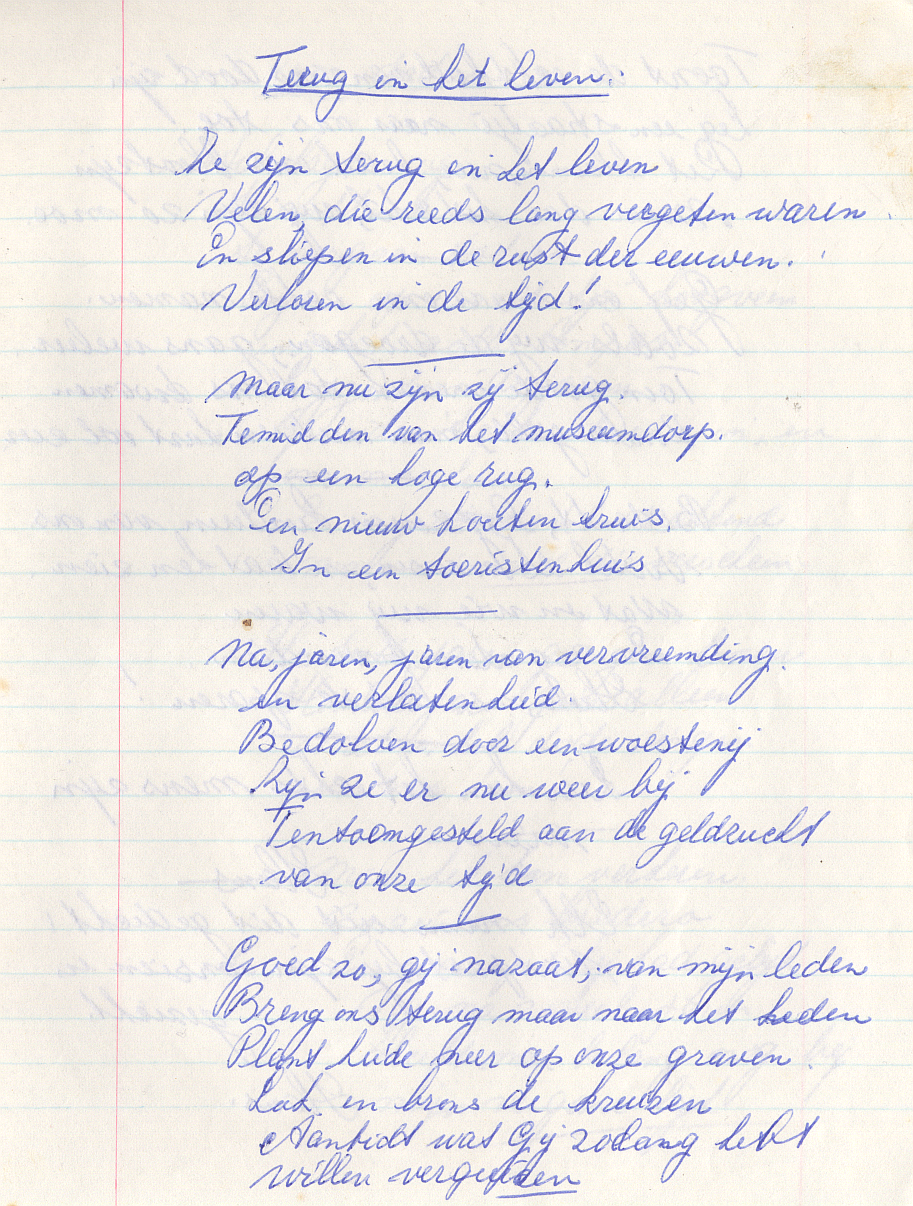 Terug in het leven.
Ze zijn terug in het leven
Velen, die reeds lang vergeten waren.
En sliepen in de rust der eeuwen.
Verloren in de tijd!
Maar nu zijn zij terug.
Temidden van het museumdorp.
op een hoge rug.
Een nieuw houten kruis.
In een toeristenhuis
Na, jaren, jaren van vervreemding.
en verlatenheid.
Bedolven door een woestenij
Zijn ze er nu weer bij
Tentoongesteld aan de geldzucht
van onze tijd
Goed zo, gij nazaat, van mijn leden
Breng ons terug maar naar het heden
Plant heide neer op onze graven.
in brons de kruizen
Aanbidt wat Gij zolang hebt
willen verguizen